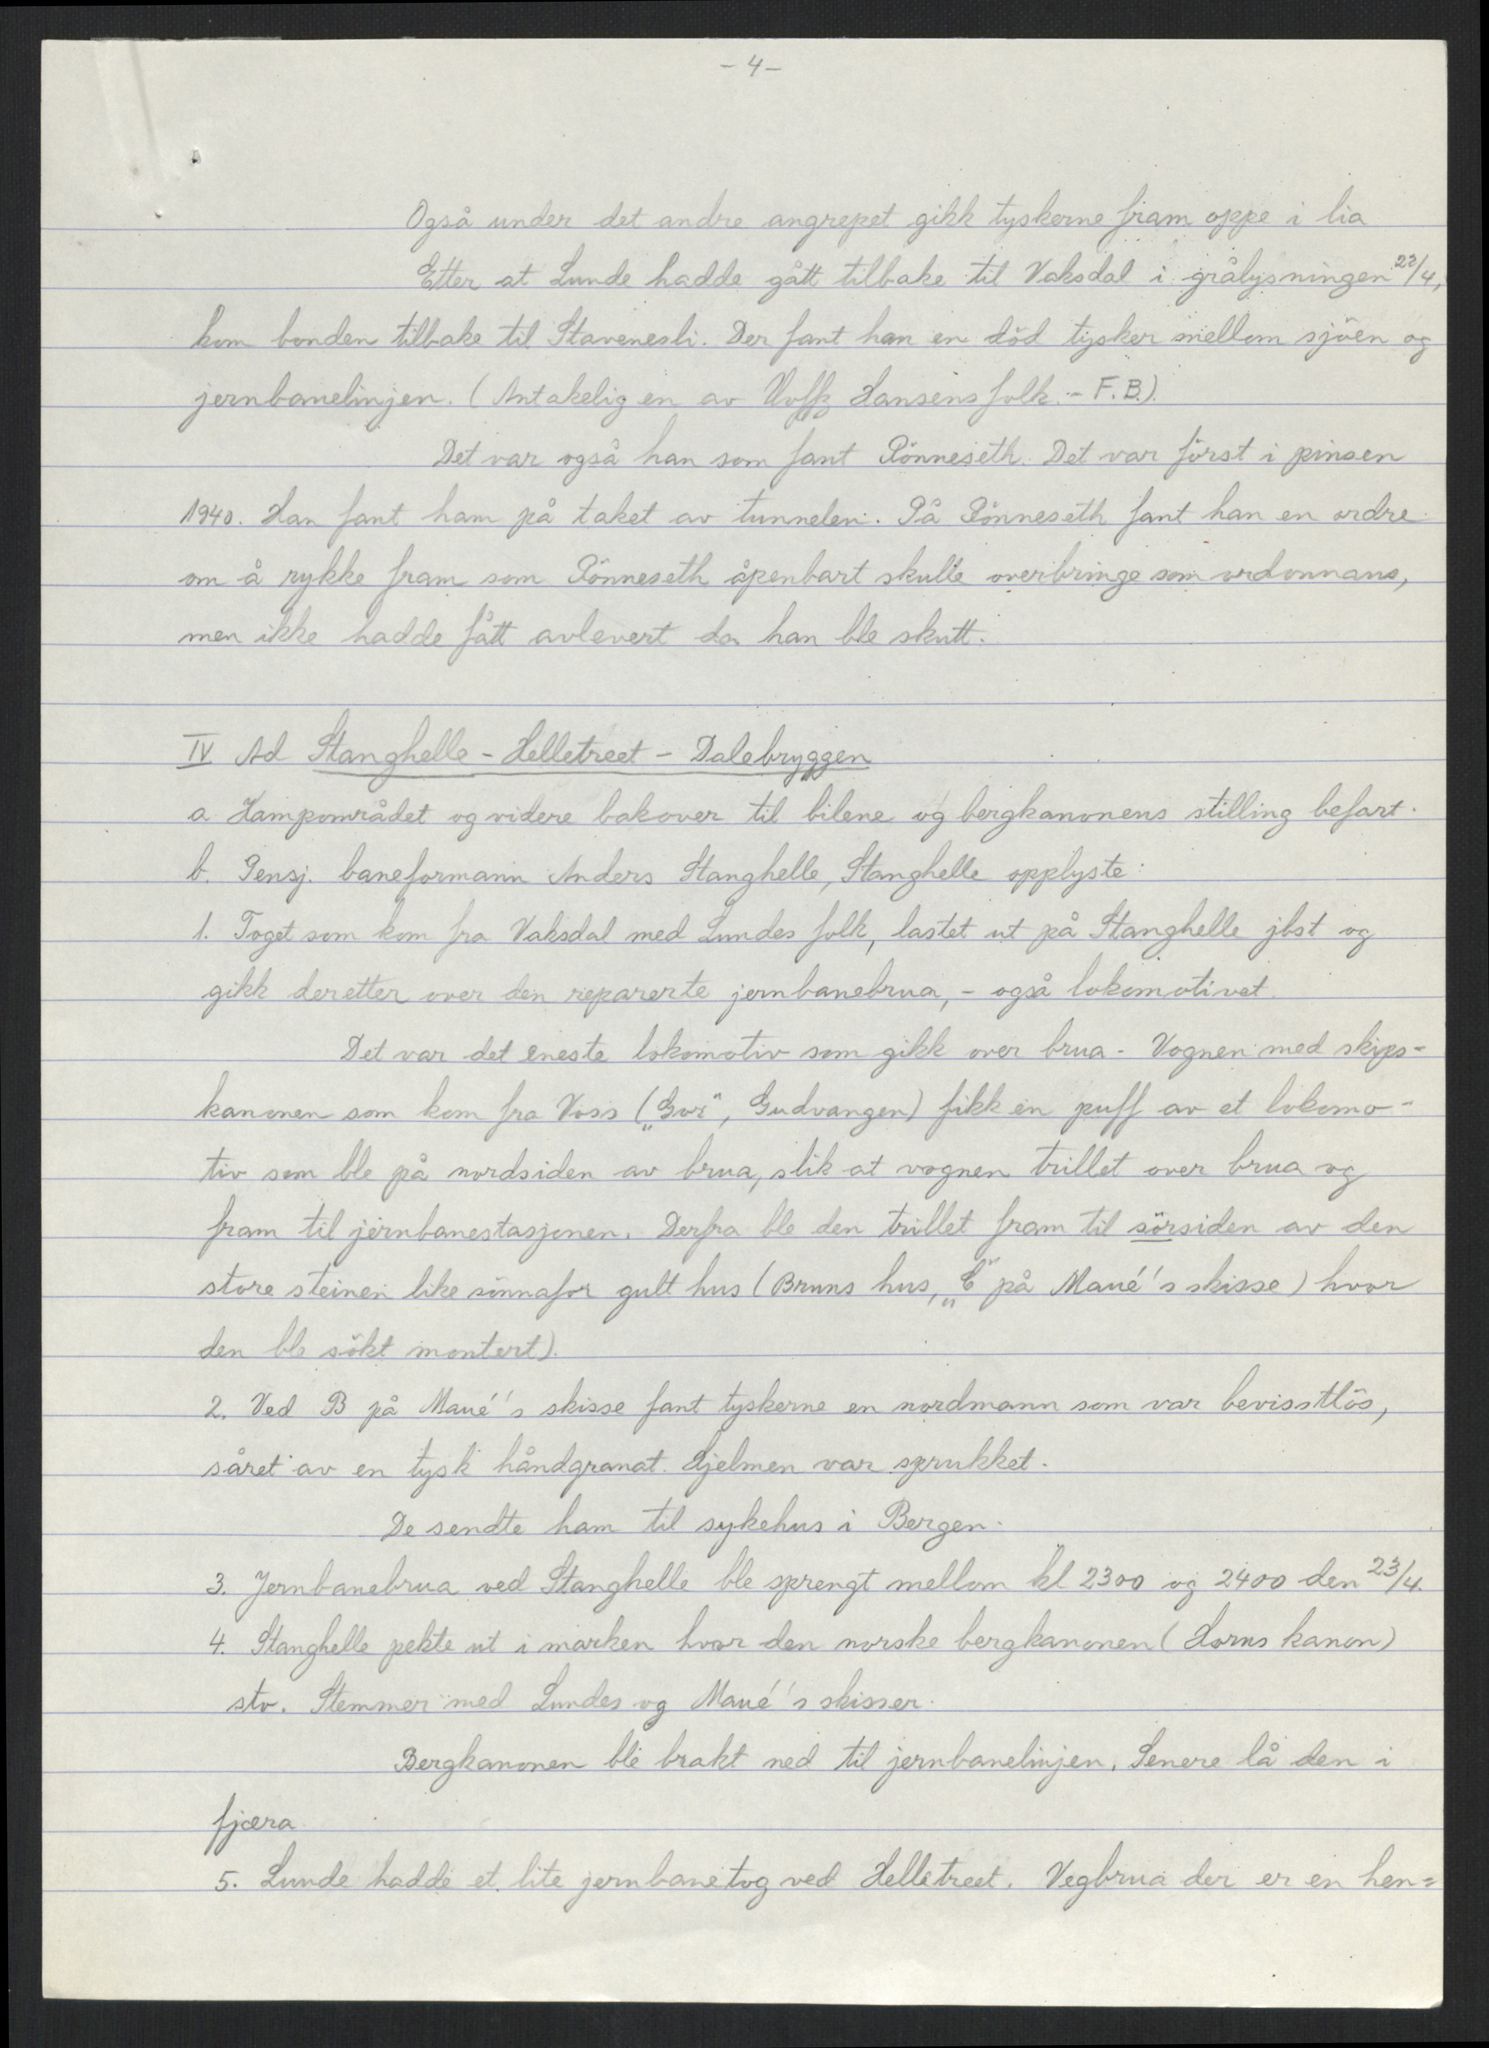 - 4 -
Også under det andre angrepet gikk tyskerne fram oppe i lia
Etter at Lunde hadde gått tilbake til Vaksdal i grålysningen 23/4,
kom bonden tilbake til Stavenesli. Der fant han en död tysker mellom sjöen og
jernbanelinjen. (Antakelig en av Hansens folk. - F.B.).
Det var også han som fant Rönneseth. Det var först i pinsen
1940. Han fant ham på taket av tunnelen. På Rönneseth fant han en ordre
om å rykke fram som Rönneseth åpenbart skulle overbringe som ordonnans,
men ikke hadde fått avlevert da han ble skutt.
IV Ad Stanghelle - Helletreet - Dalebryggen
a Kampområdet og videre bakover til bilene og bergkanonens stilling befart.
b. Pensj. baneformann Anders Stanghelle, Stanghelle opplyste:
1. Toget som kom fra Vaksdal med Lundes folk, lastet ut på Stanghelle jbst og
gikk deretter over den reparerte jernbanebrua, - også lokomotivet.
Det var det eneste lokomotiv som gikk over brua. Vognen med skips-
kanonen som kom fra Voss („Gor", Gudvangen) fikk en puff av et lokomo-
tiv som ble på nordsiden av brua, slik at vognen trillet over brua og
fram til jernbanestasjonen. Derfra ble den trillet fram til sörsiden av den
store steinen like sönnafor gult hus (Bruns hus, „E" på Maué's skisse) hvor
den ble sökt montert).
2. Ved B på Maué's skisse fant tyskerne en nordmann som var bevisstlös,
såret av en tysk håndgranat. Hjelmen var sprukket.
De sendte ham til sykehus i Bergen.
3. Jernbanebrua ved Stanghelle ble sprengt mellom kl 2300 og 2400 den 23/4.
4. Stanghelle pekte ut i marken hvor den norske bergkanonen (Horns kanon)
sto. Stemmer med Lundes og Maué's skisser.
Bergkanonen ble brakt ned til jernbanelinjen. Senere lå den i
fjæra
5. Lunde hadde et lite jernbanetog ved Helletreet. Vegbrua der er en hen=